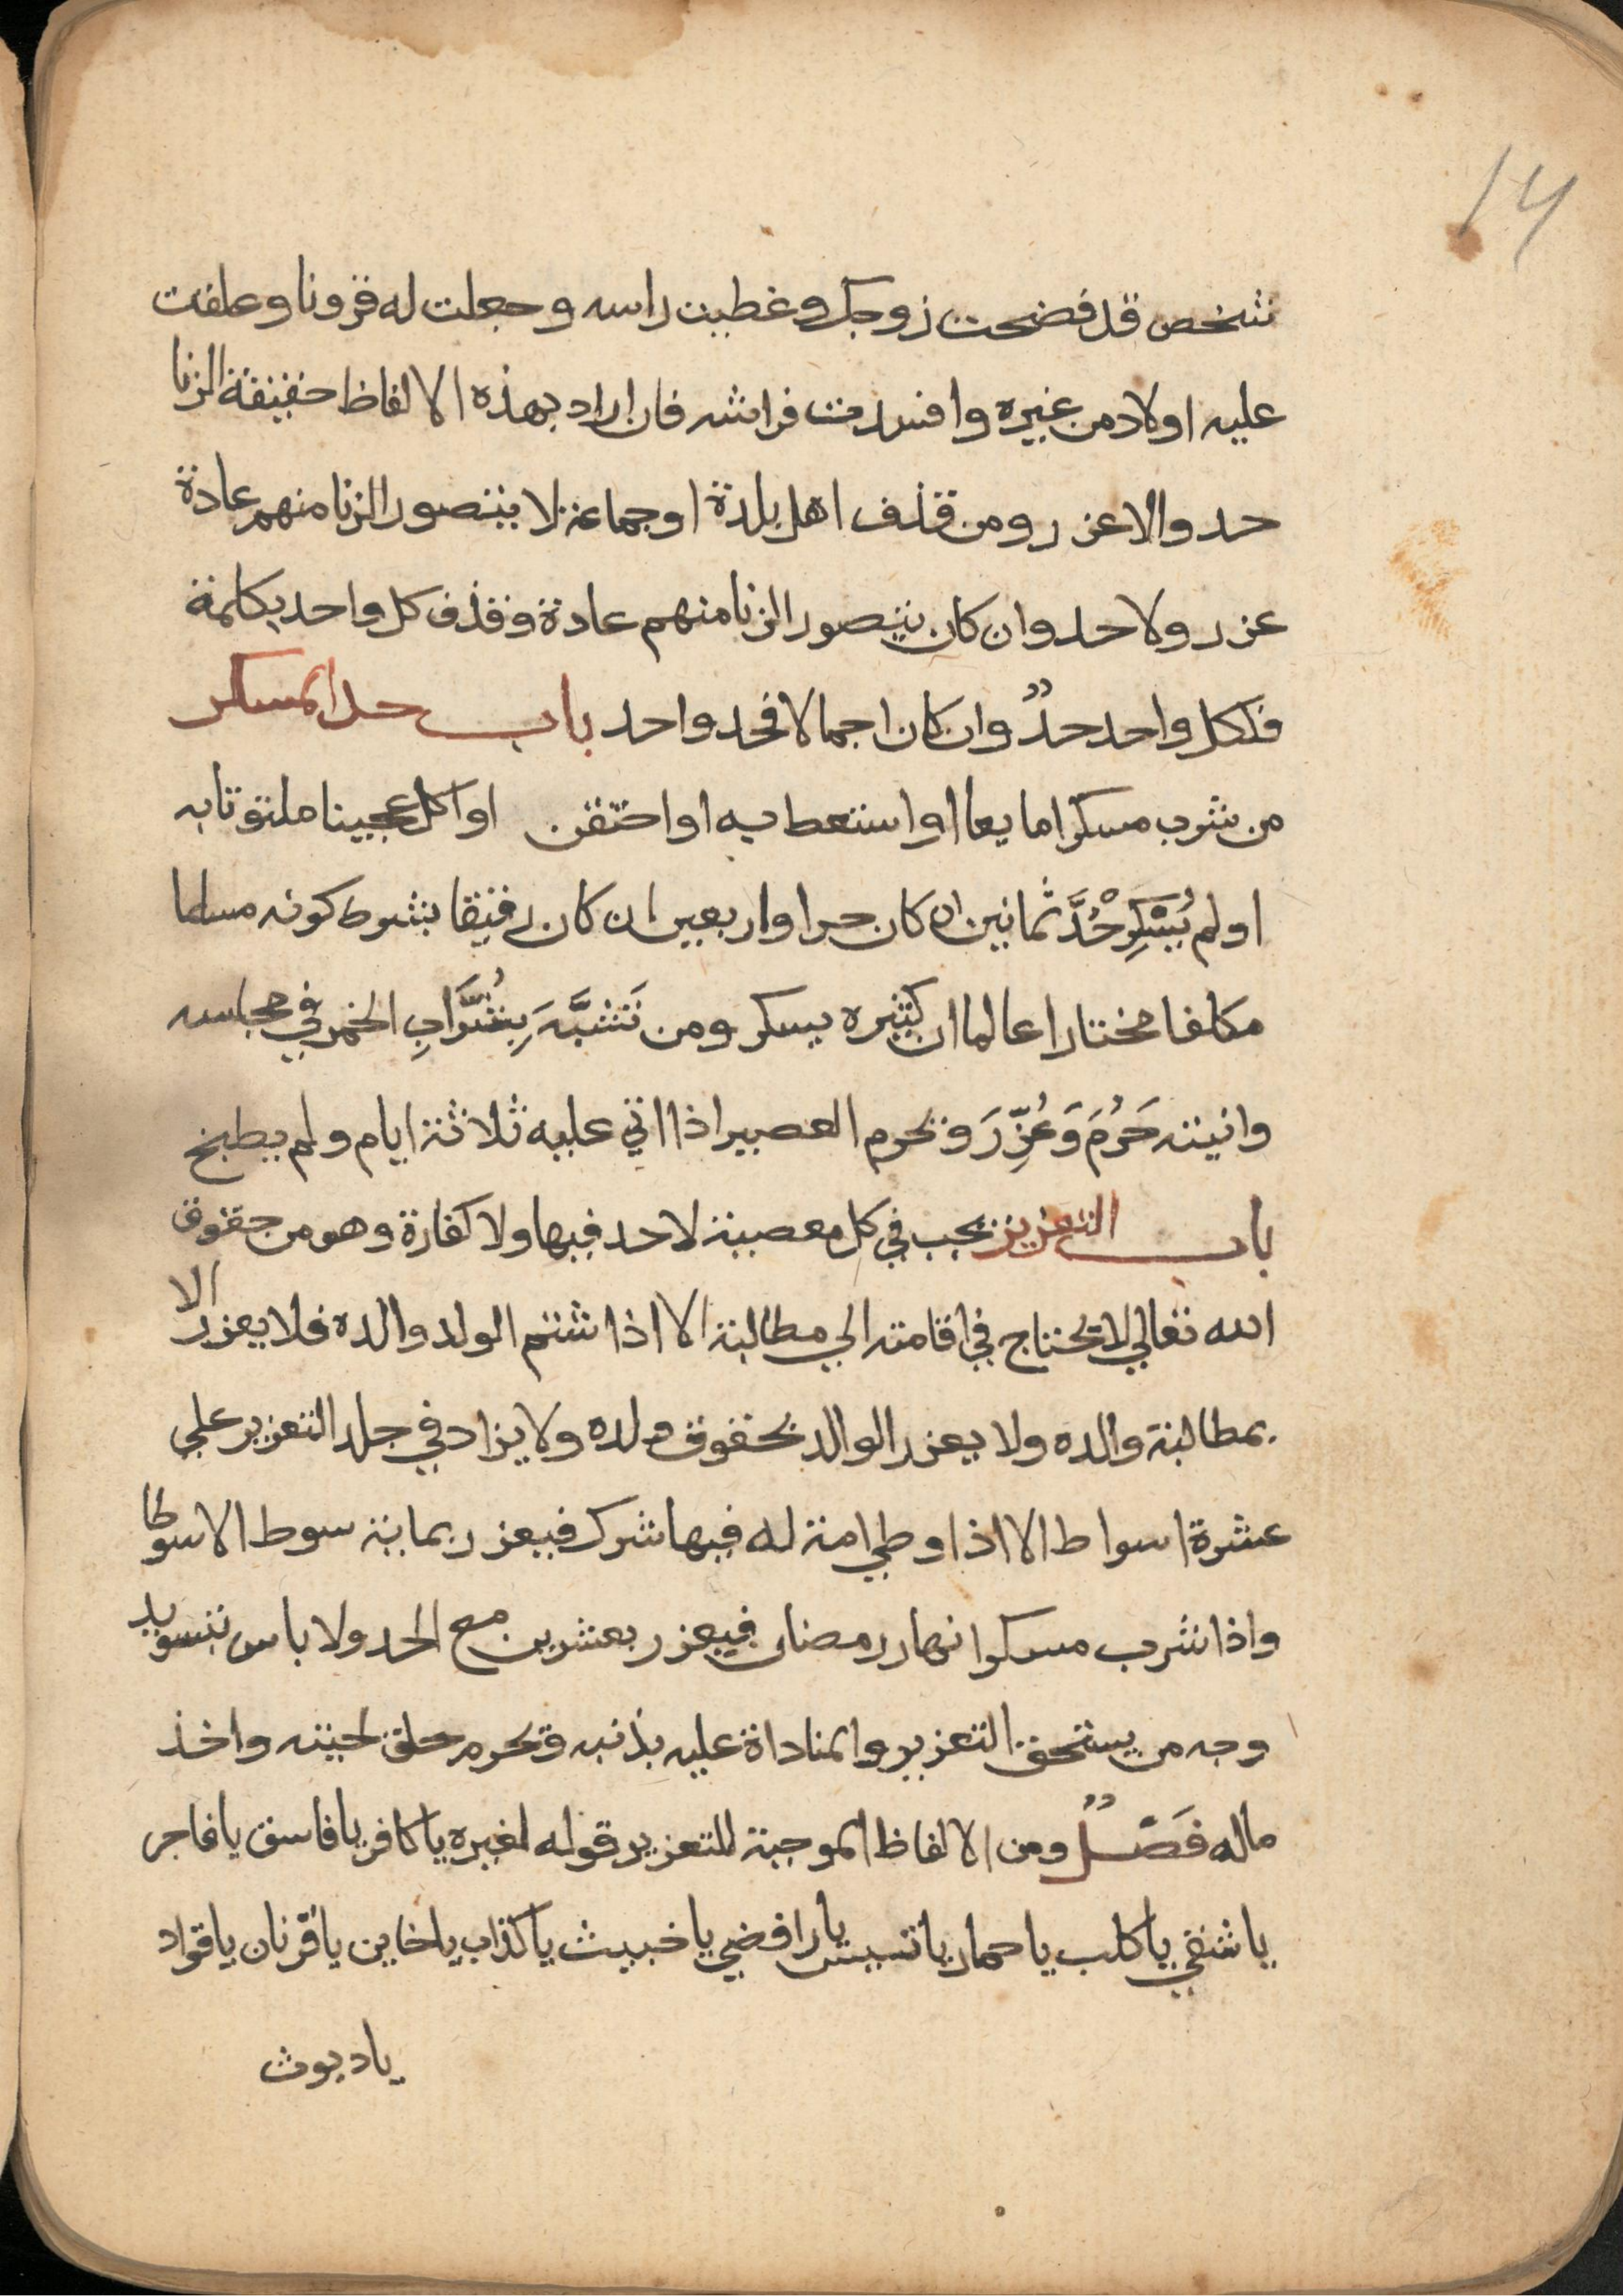 14
شخص قد فضحت زوجك وغطيت راسه وجعلت له قرونا وعلقت
عليه اولاد من غيره وافسدت فراشه فان اراد بهذه الالفاظ حقيقة الزنا
حد والا عزر ومن قذف اهل بلدة او جماعة لا يتصور الزنا منهم عادة
عزر ولا حد وان كان يتصور الزنا منهم عادة وقذف كل واحد بكلمة
فلكل واحد حدٌ وان كان اجمالا فحد واحد باب حد المسكر
من شرب مسكرا مايعا او استعط به او احتقن او اكل عجينا ملتوتا به
او لم يُسْكِرْ حُدَّ ثمانين ان كان حرا واربعين ان كان رقيقا بشرط كونه مسلما
مكلفا مختارا عالما ان كثيره يسكر ومن تَشبَّهَ بِشُرَّابِ الخمر في مجلسه
وانيته حَرُمَ وَعُزِّرَ ويحرم العصير اذا اتي عليه ثلاثة ايام ولم يطبخ
باب التعزيز يجب في كل معصية لا حد فيها ولا كفارة وهو من حقوق
الله تعالي لا يحتاج في اقامته الي مطالبة الا اذا شتم الولد والده فلا يعزر الا
بمطالبة والده ولا يعزر الوالد بحقوق ولده ولا يزاد في جلد التعزير علي
عشرة اسواط الا اذا وطي امة له فيها شرك فيعزر بماية سوط الا سوطا
واذا شرب مسكرا نهار رمضان فيعزر بعشرين مع الحد ولا باس بتسويد
وجه من يستحق التعزير والمناداة عليه بذنبه ويحرم حلق لحيته واخذ
ماله فَصْلٌ ومن الالفاظ الموجبة للتعزير قوله لغيره يا كافر يا فاسق يا فاجر
يا شقي يا كلب يا حمار يا تيس يا رافضي يا خبيث يا كذاب يا خاين يا قرنان يا قواد
يا ديوث